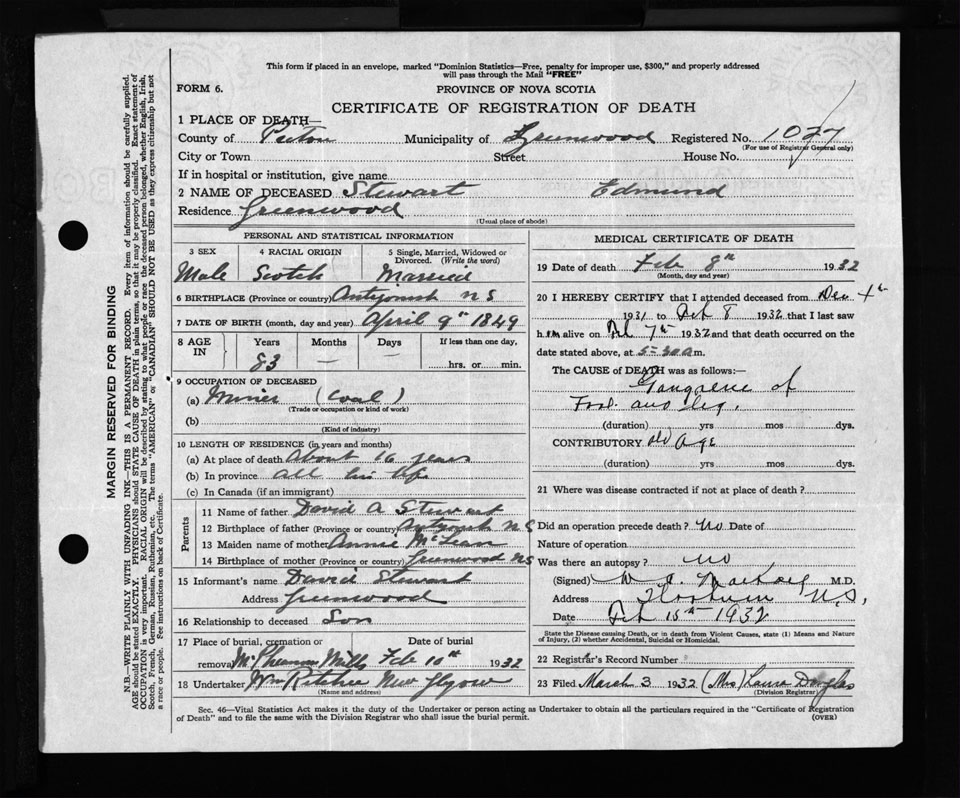 This form if placed in an envelope, marked "Dominion Statistics—Free, penalty for improper use, $300," and properly addressed
will pass through the Mail "FREE"
FORM 6.
PROVINCE OF NOVA SCOTIA
CERTIFICATE OF REGISTRATION OF DEATH
1 PLACE OF DEATH—
County of Pictou Municipality of Greenwood Registered No. 1077
(For use of Registrar General only)
City or Town Street House No.
If in hospital or institution, give name
2 NAME OF DECEASED Stewart Edmund
Residence Greenwood
(Usual place of abode)
PERSONAL AND STATISTICAL INFORMATION
3 SEX 4 RACIAL ORIGIN 5 Single, Married, Widowed or
Divorced. (Write the word)
Male Scotch Married
6 BIRTHPLACE (Province or country) Antigonish N S
7 DATE OF BIRTH (month, day and year) April 9th 1849
8 AGE IN Years Months Days If less than one day,
83 — — hrs. or min.
9 OCCUPATION OF DECEASED
(a) Miner (Coal)
(Trade or occupation or kind of work)
(b)
(Kind of industry)
10 LENGTH OF RESIDENCE (in years and months)
(a) At place of death About 16 years
(b) In province all his life
(c) In Canada (if an immigrant)
Parents
11 Name of father David A Stewart
12 Birthplace of father (Province or country) Antigonish N S
13 Maiden name of mother Annie McLean
14 Birthplace of mother (Province or country) Greenwood NS
15 Informant's name David Stewart
Address Greenwood
16 Relationship to deceased Son
17 Place of burial, cremation or Date of burial
removal Mills Feb 10th 1932
18 Undertaker Wm Ritchie New Glasgow
(Name and address)
MEDICAL CERTIFICATE OF DEATH
19 Date of death Feb 8th 1932
(Month, day and year)
20 I HEREBY CERTIFY that I attended deceased from Dec
1931 to Feb 8 1932 that I last saw
h im alive on Feb 7th 1932 and that death occurred on the
date stated above, at 5-30 a m.
The CAUSE of DEATH was as follows:—
Gangrene of
Foot and leg.
(duration) yrs mos dys.
CONTRIBUTORY Old Age
(duration) yrs. mos. dys.
21 Where was disease contracted if not at place of death?
Did an operation precede death? no Date of
Nature of operation
Was there an autopsy? no
(Signed) M.D.
Address Thorburn N.S,
Date Feb 15th 1932
State the Disease causing Death, or in death from Violent Causes, state (1) Means and Nature
of Injury, (2) whether Accidental, Suicidal or Homicidal.
22 Registrar's Record Number
23 Filed March 3 1932 (Mrs) Laura Douglas
(Division Registrar)
Sec. 46—Vital Statistics Act makes it the duty of the Undertaker or person acting as Undertaker to obtain all the particulars required in the "Certificate of Registration
of Death" and to file the same with the Division Registrar who shall issue the burial permit.
(OVER)
MARGIN RESERVED FOR BINDING
N.B.—WRITE PLAINLY WITH UNFADING INK—THIS IS A PERMANENT RECORD. Every item of information should be carefully supplied.
AGE should be stated EXACTLY. PHYSICIANS should STATE CAUSE OF DEATH in plain terms, so that it may be properly classified. Exact statement of
OCCUPATION is very important. RACIAL ORIGIN will be described by stating to what people or race the deceased person belonged, whether English, Irish,
Scotch, French, German, Russian, Ruthenian, etc. The terms "AMERICAN" or "CANADIAN" SHOULD NOT BE USED as they express citizenship but not
a race or people. See instructions on back of Certificate.